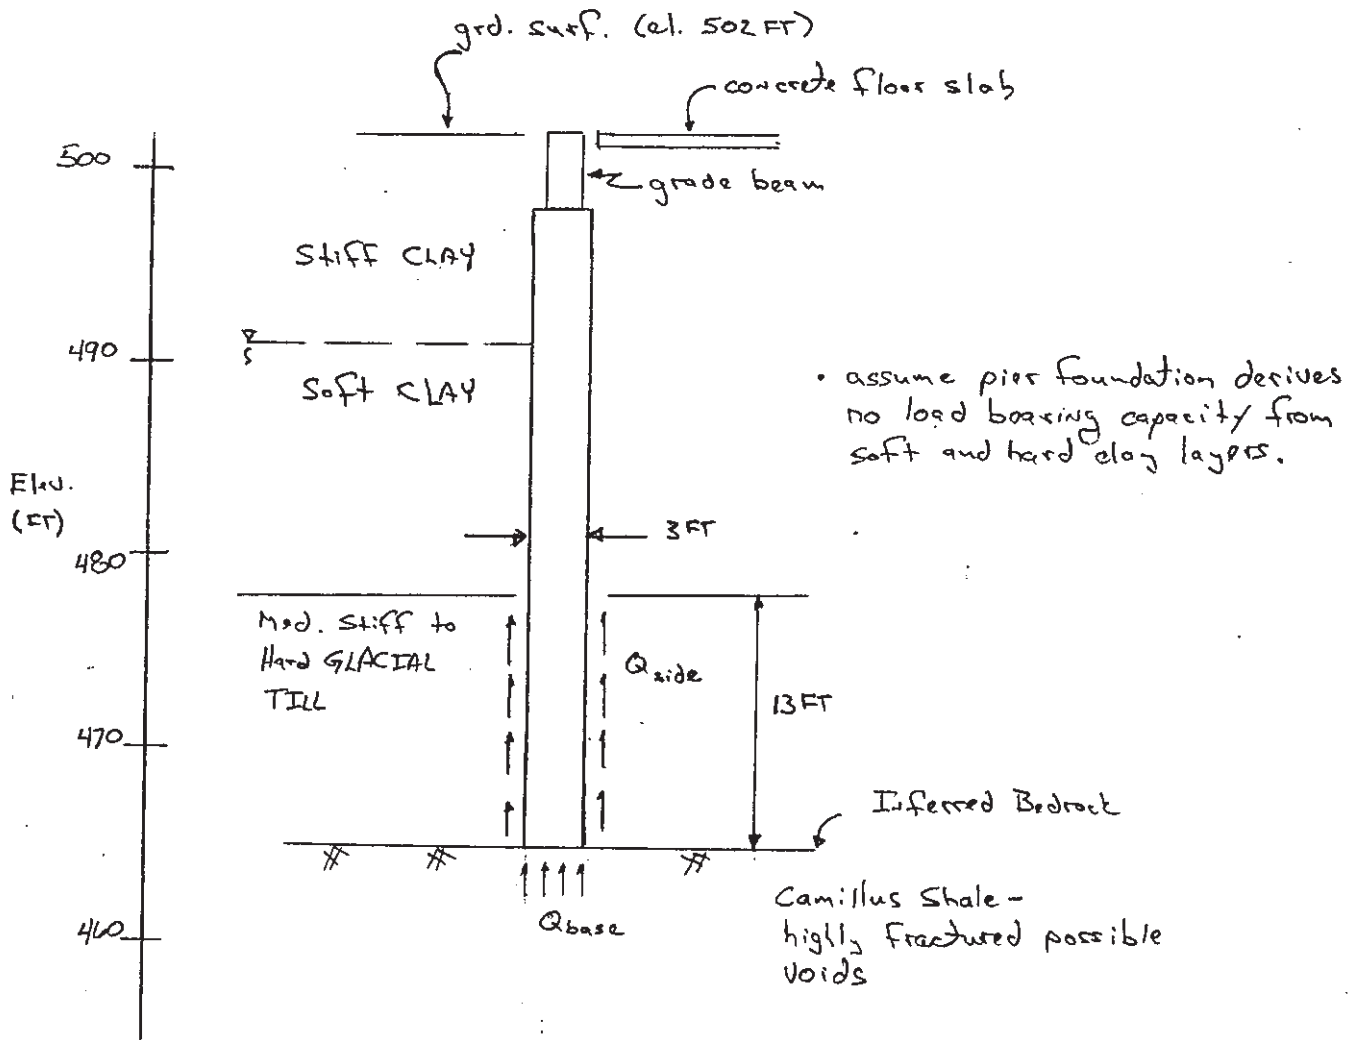 grd. surf. (el. 502 FT)
concrete floor slab
500
grade beam
Stiff CLAY
490
Soft CLAY
• assume pier foundation derives
no load bearing capacity from
soft and hard clay layers.
Elev.
(FT)
3 FT
480
Med. Stiff to
Hard GLACIAL
TILL
Qside
13 FT
470
Inferred Bedrock
Camillus Shale -
highly fractured possible
voids
Qbase
460